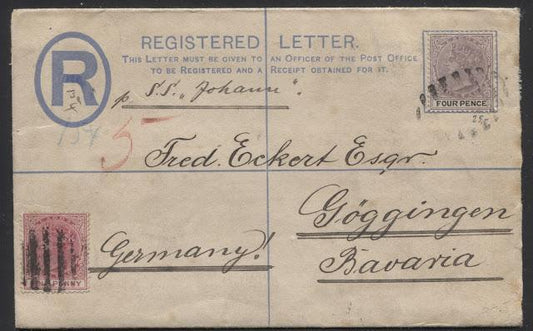 REGISTERED LETTER.
THIS LETTER MUST BE GIVEN TO AN OFFICER OF THE POST OFFICE
TO BE REGISTERED AND A RECEIPT OBTAINED FOR IT.
R
p S.S. „Johann".
FOUR PENCE
25
157
5
Fred. Eckert Esqr.
Göggingen
Germany!
Bavaria
PENNY